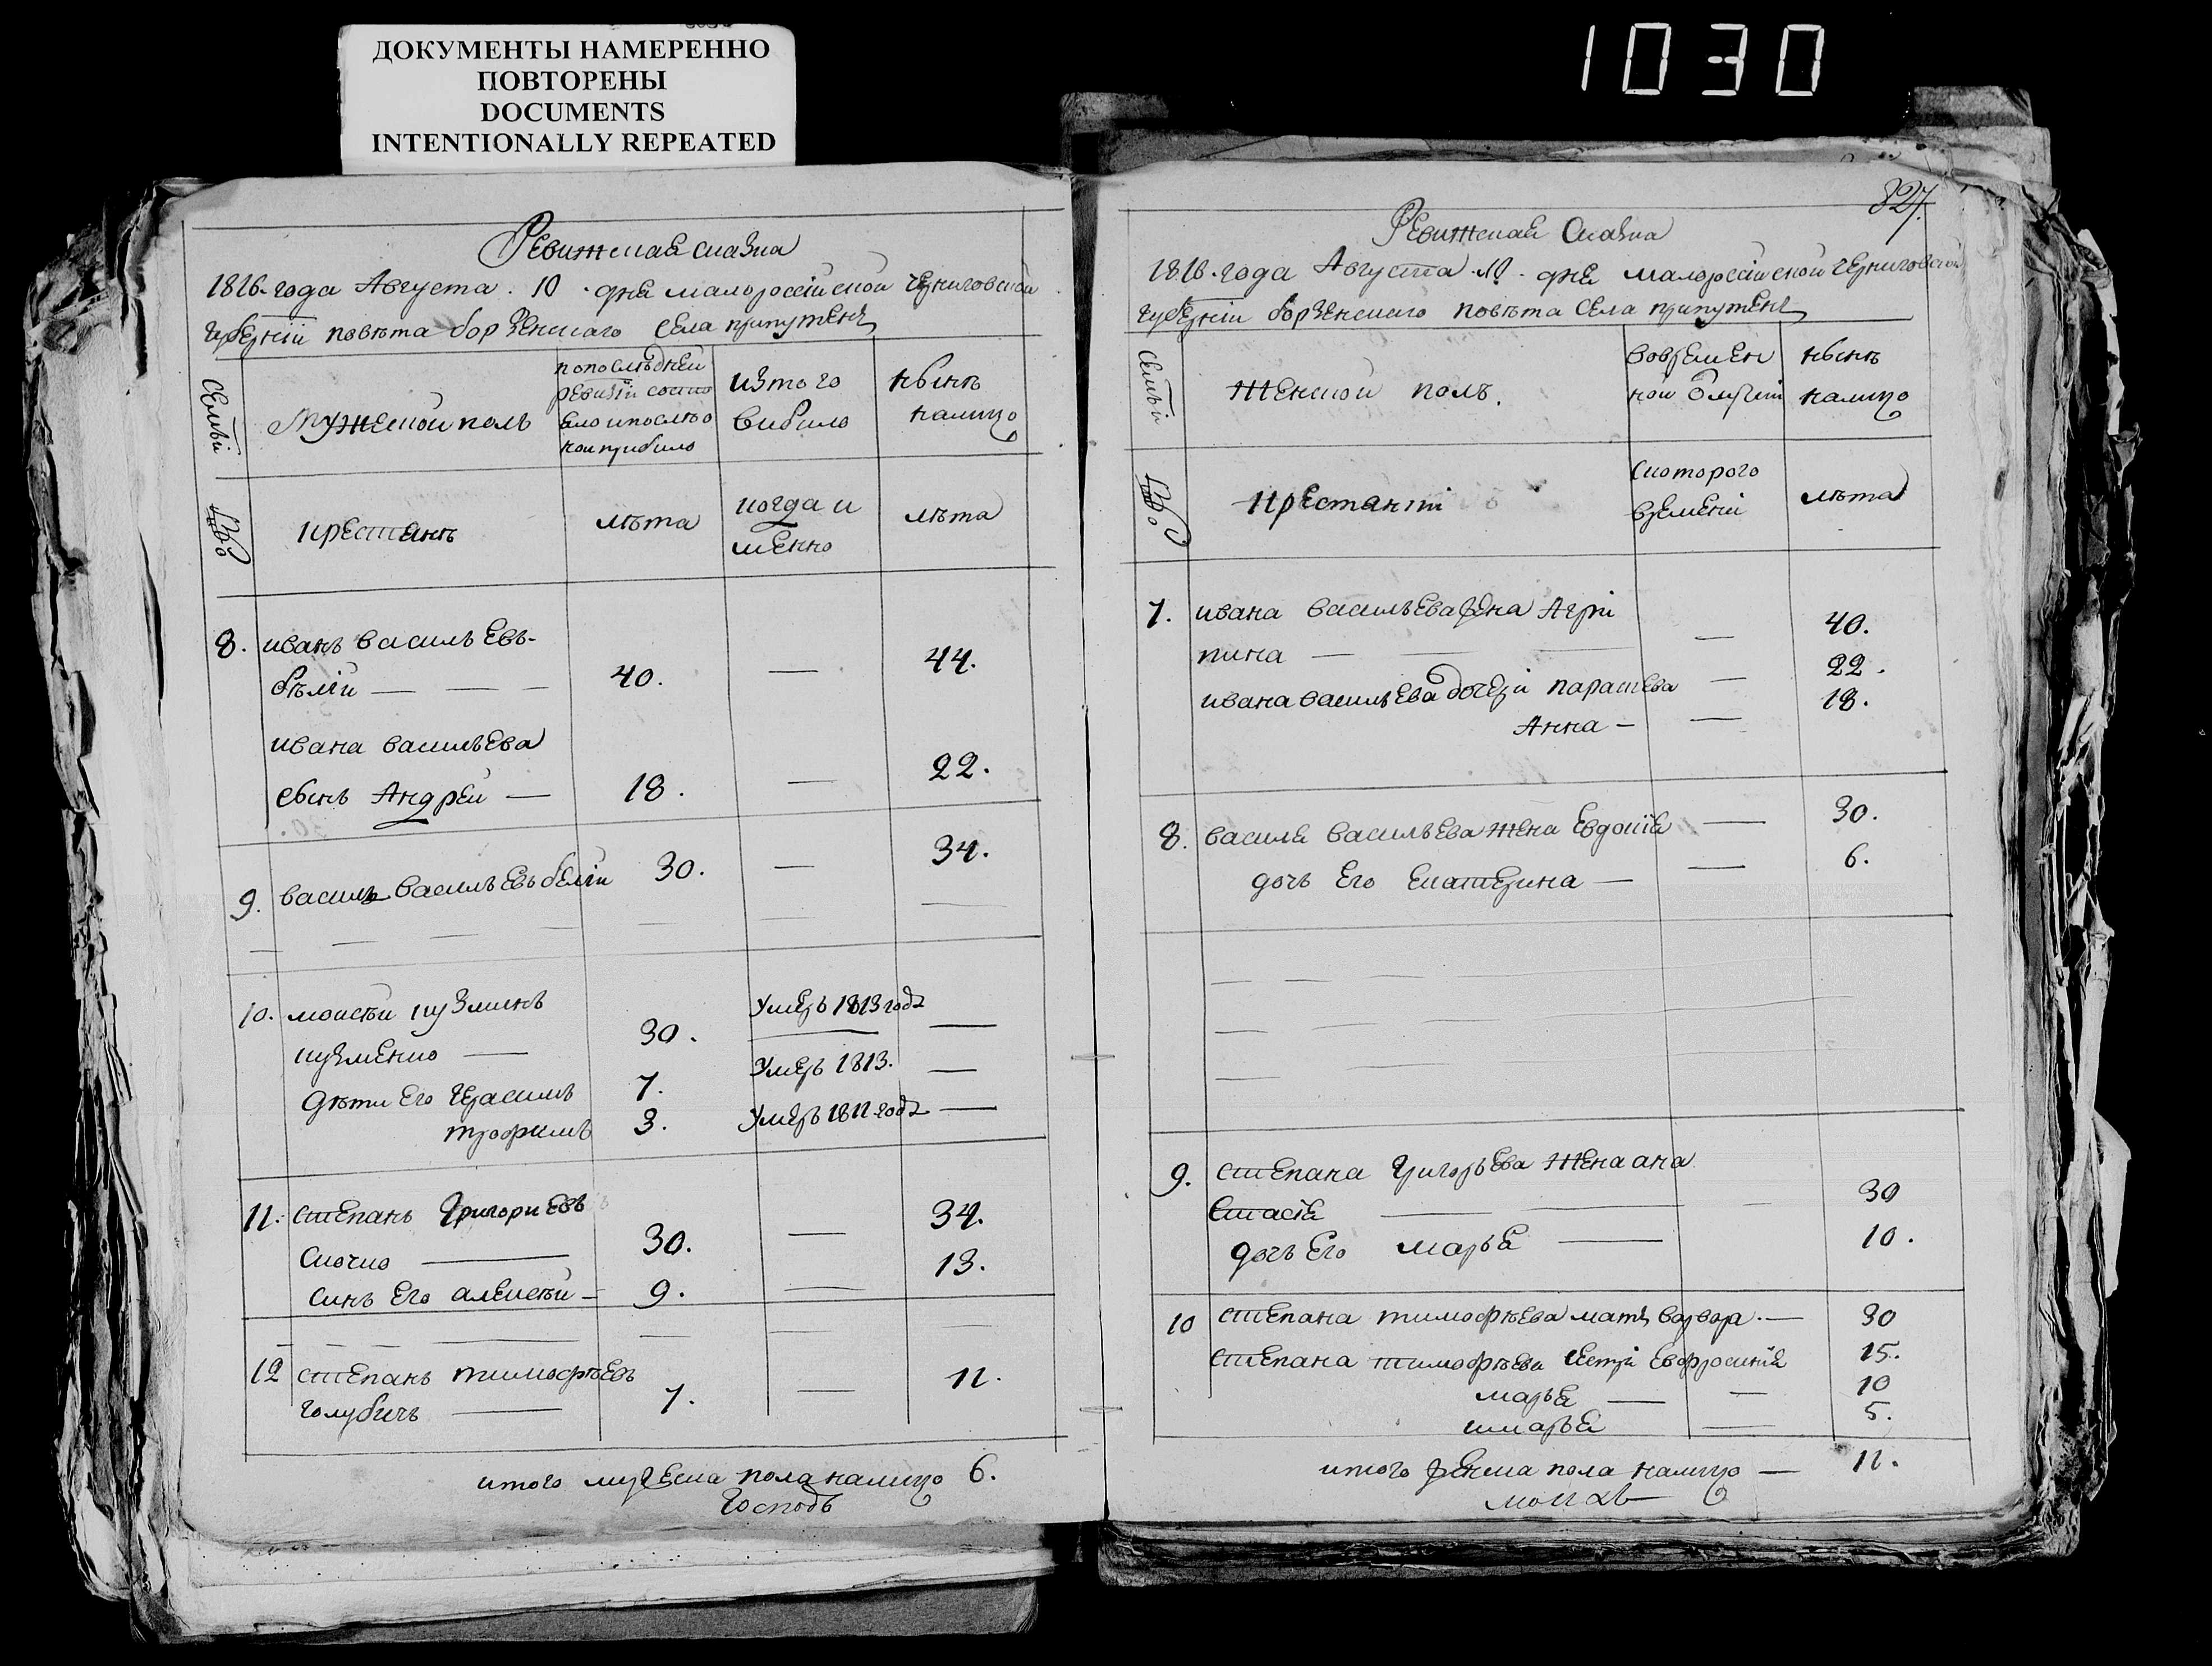 ДОКУМЕНТЫ НАМЕРЕННО
ПОВТОРЕНЫ
DOCUMENTS
INTENTIONALLY REPEATED
1030
Ревижская сказка
1816 года Августа . 10 . дня малоросcійской Черниговской
губерніи повѣта борзенскаго села припутенъ
Семьи
Мужеской полъ
по послѣдней
ревизіи состо
яло и послѣ о
ной прибыло
из того
выбыло
нынѣ
налицо
крестянъ
лѣта
когда и
менно
лѣта
8. иванъ василъевъ-
бѣлій — — — 40. — 44.
ивана василъева
сынъ Андрей — 18. — 22.
9. василь василъевъ белій 30. — 34.
10. моисей кузминъ
кузменко — 30. Умеръ 1813 года —
дѣти его Герасимъ 7. Умеръ 1813. —
трофимъ 3. Умеръ 1812 года —
11. степанъ Григориевъ
скочко — 30. — 34.
синъ его алексѣй — 9. — 13.
12 степанъ тимофѣевъ
голубичъ — 7. — 11.
итого мужеска пола налицо 6.
Господ
827.
Ревижская Сказка
1816. года Августа .10. дня малоросcійской черниговской
губерніи борзенскаго повѣта села припутенъ
Семьи
женской полъ.
во времен
ной отлучки
нынѣ
налицо
крестянкі
с которого
времені
лѣта
7. ивана василъева жена Агрі
пина — — — — 40.
ивана василъева дочери параскева — 22.
Анна — — 18.
8. василя василъева жена Евдокія — 30.
дочъ его екатерина — — 6.
9. степана григоръева жена ана
стасія — — — 30
дочъ его маръя — 10.
10 степана тимофѣева матъ варвара. — 30
степана тимофѣева сестри Евфросинія 15.
маръя — — 10
и маръя — 5.
итого женска пола налицо — 11.